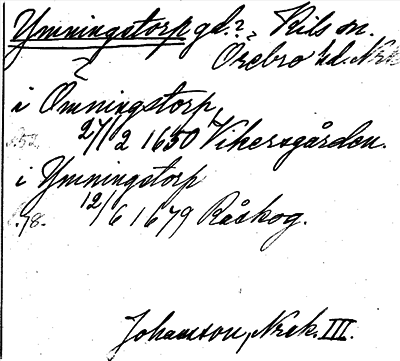 Ymningstorp gd.? Kils sn.
Örebro hd. Nrk
i Ömningstorp,
27/2 1650 Vikersgården.
i Ymningstorp
12/6 1679 Råskog.
Johansson, Nrk. III.